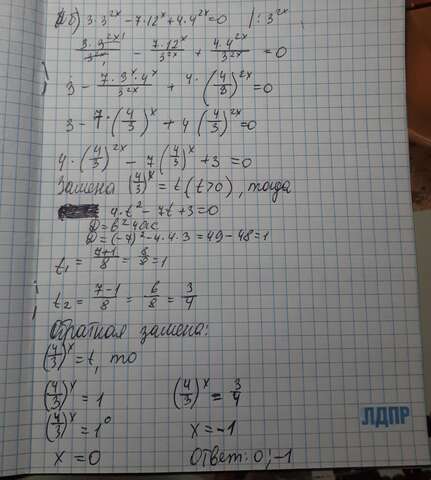 б) 3·3^{2x} - 7·12^x + 4·4^{2x} = 0 |: 3^{2x}
\frac{3·3^{2x}}{3^{2x}} - \frac{7·12^x}{3^{2x}} + \frac{4·4^{2x}}{3^{2x}} = 0
3 - \frac{7·3^x·4^x}{3^{2x}} + 4·(\frac{4}{3})^{2x} = 0
3 - 7·(\frac{4}{3})^x + 4(\frac{4}{3})^{2x} = 0
4·(\frac{4}{3})^{2x} - 7(\frac{4}{3})^x + 3 = 0
Замена (\frac{4}{3})^x = t (t>0), тогда
4·t² - 7t + 3 = 0
D = b² 4ac
D = (-7)² - 4·4·3 = 49 - 48 = 1
t₁ = \frac{7+1}{8} = \frac{8}{8} = 1
t₂ = \frac{7-1}{8} = \frac{6}{8} = \frac{3}{4}
Обратная замена:
(\frac{4}{3})^x = t, то
(\frac{4}{3})^x = 1 (\frac{4}{3})^x = \frac{3}{4}
(\frac{4}{3})^x = 1⁰ x = -1
x = 0 Ответ: 0; -1
ЛДПР